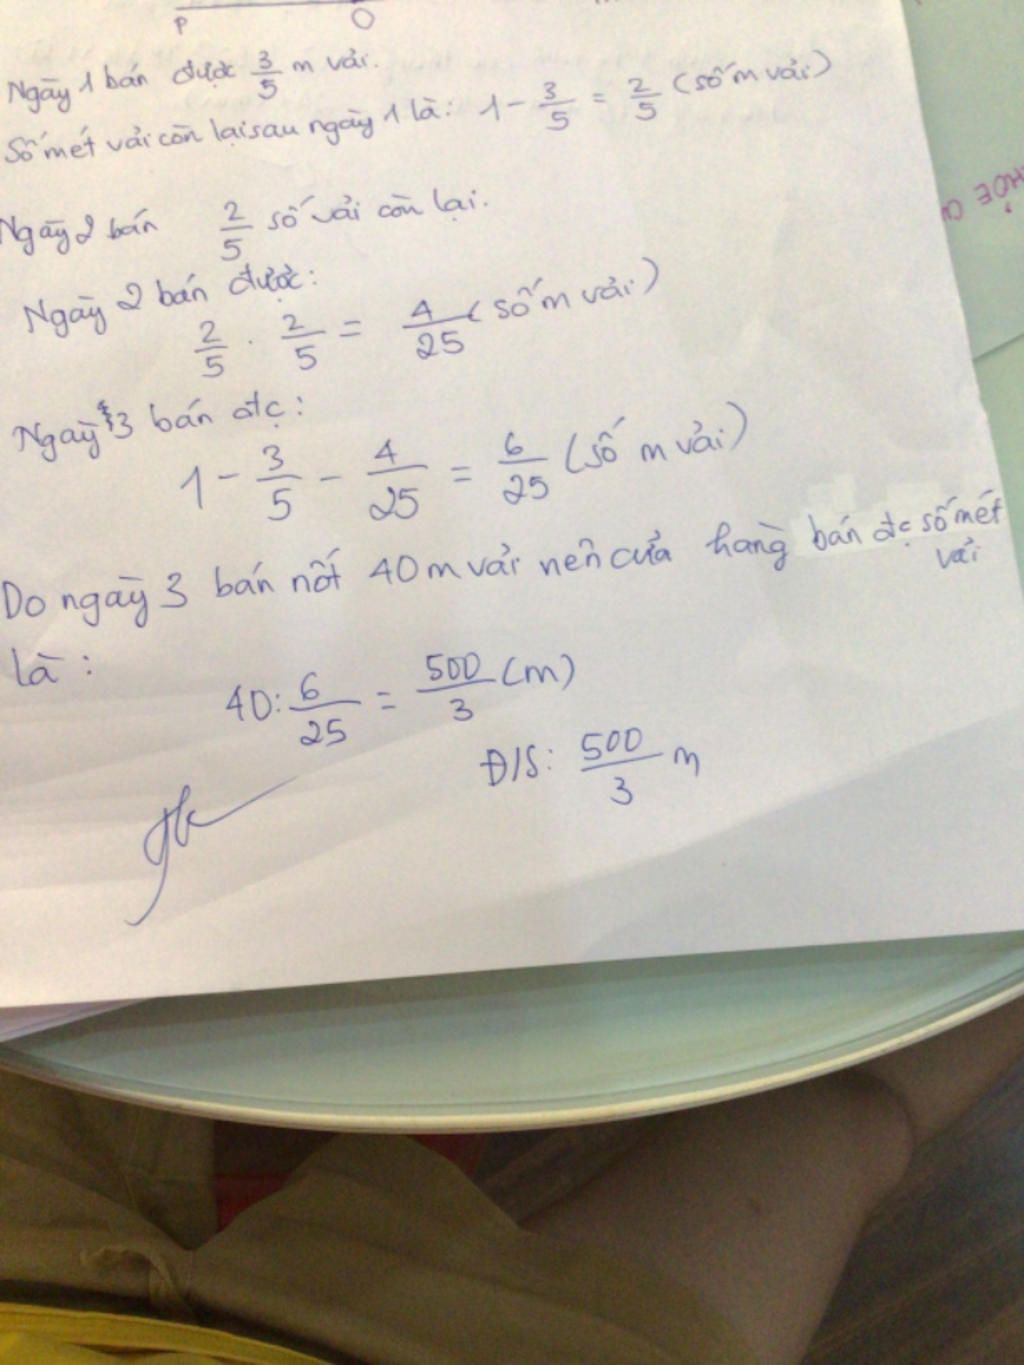 P O
Ngày 1 bán được 3/5 m vải.
Số mét vải còn lại sau ngày 1 là: 1 - 3/5 = 2/5 (số m vải)
Ngày 2 bán 2/5 số vải còn lại.
Ngày 2 bán được:
2/5 . 2/5 = 4/25 (số m vải)
Ngày 3 bán đc:
1 - 3/5 - 4/25 = 6/25 (số m vải)
Do ngày 3 bán nốt 40 m vải nên cửa hàng bán đc số mét
vải
là:
40 : 6/25 = 500/3 (m)
Đ/S: 500/3 m